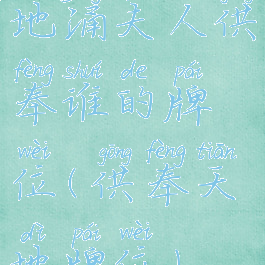 地涌夫人供
fèng shuí de pái
奉谁的牌
wèi gōng fèng tiān
位(供奉天
dì pái wèi
地牌位)